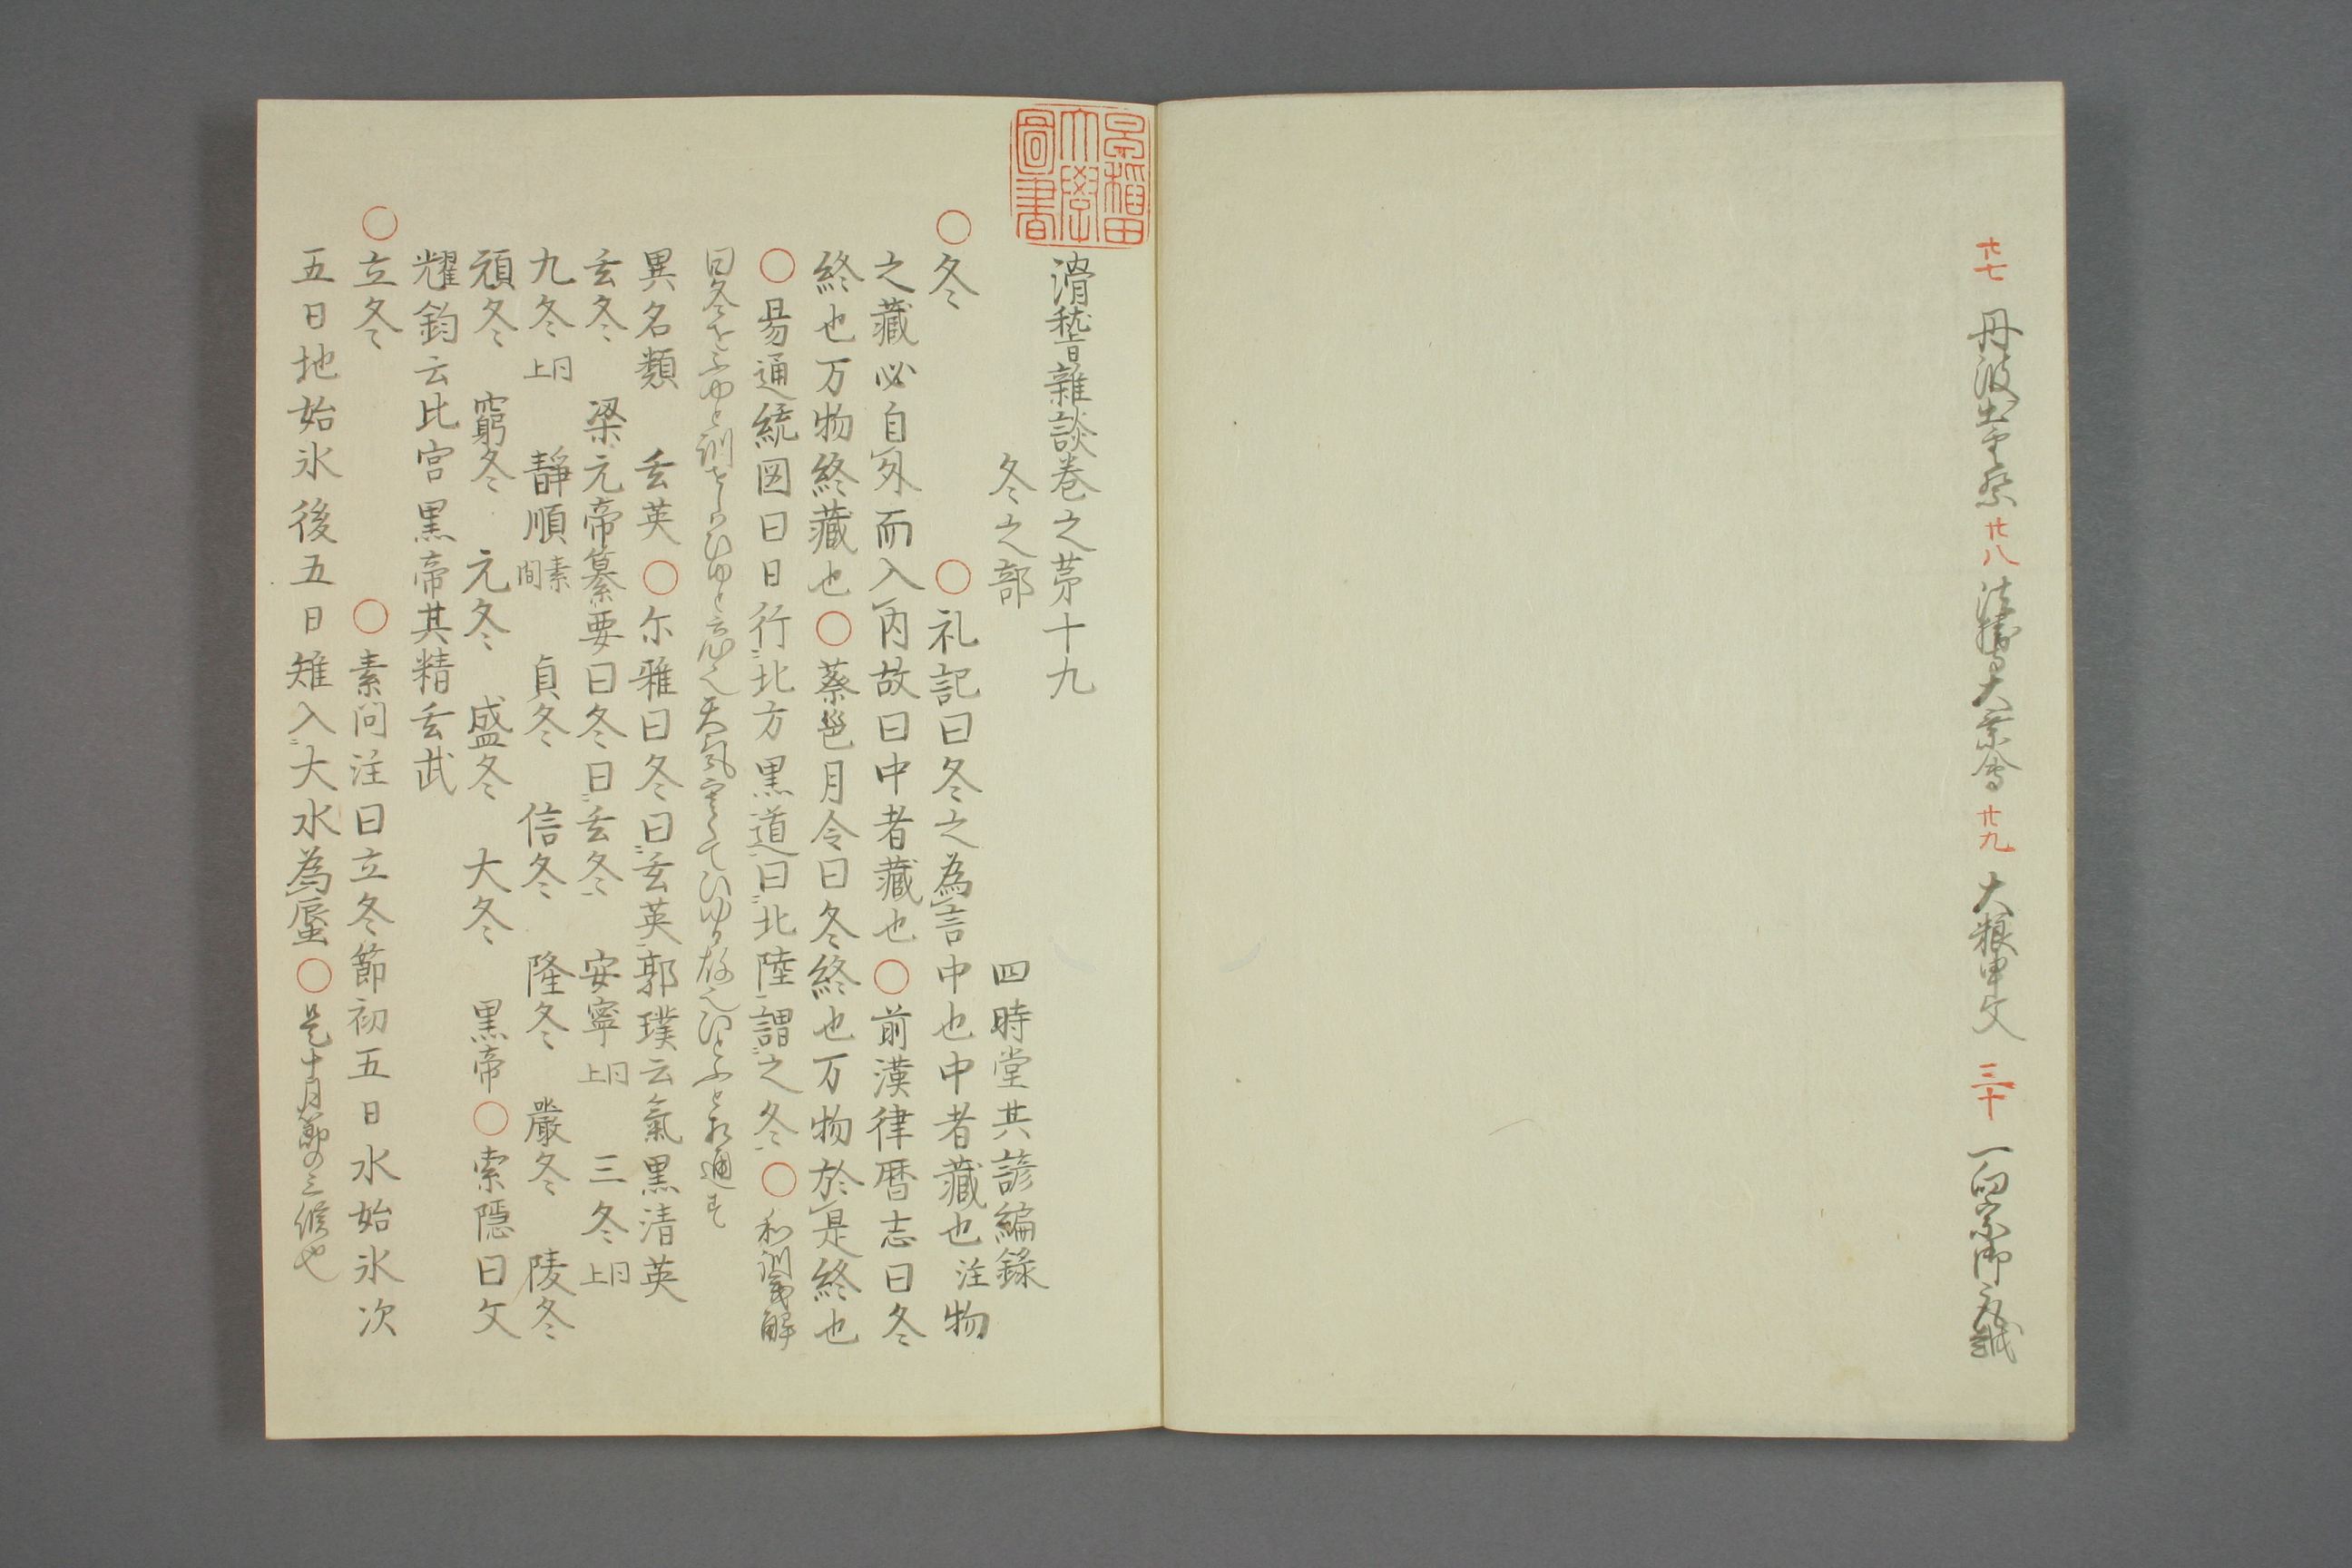 廿七 丹波出雲祭 廿八 法勝寺大乗會 廿九 大粮申文 三十 一向宗御
早稲田大學圖書
滑稽雜談巻之茅十九
冬之部 四時堂其諺編錄
○冬 ○礼記曰冬之為言中也中者藏也注物
之藏必自外而入内故曰中者藏也○前漢律暦志曰冬
終也万物終藏也○蔡邕月令曰冬終也万物於是終也
○易通統図曰日行北方黒道曰北陸謂之冬○和訓義解
曰冬をふゆと訓せしハひゆと云心也天気寒くてひゆる故也ひとふと相通す
異名類 玄英○尓雅曰冬曰玄英郭璞云氣黒清英
玄冬 梁元帝纂要曰冬曰玄冬 安寧同上 三冬同上
九冬同上 靜順素問 貞冬 信冬 隆冬 嚴冬 陵冬
頑冬 窮冬 元冬 盛冬 大冬 黒帝○索隠曰文
耀鈎云北宮黒帝其精玄武
○立冬 ○素问注曰立冬節初五日水始氷次
五日地始氷後五日雉入大水為蜃○是十月節の三候也